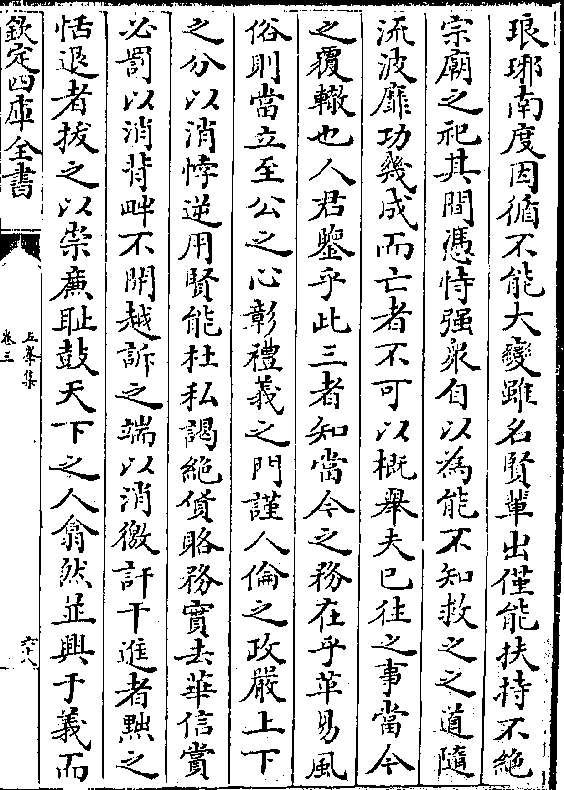 琅琊南度因循不能大變雖名賢輩出僅能扶持不絶
宗廟之祀其間憑恃强衆自以為能不知救之之道隨
流波靡功幾成而亡者不可以概舉夫已往之事當今
之覆轍也人君鑒乎此三者知當今之務在乎革易風
俗則當立至公之心彰禮義之門謹人倫之政嚴上下
之分以消悖逆用賢能杜私謁絶貨賂務實去華信賞
必罰以消背畔不開越訴之端以消徼訐干進者黜之
恬退者拔之以崇廉恥鼓天下之人翕然並興于義而
欽定四庫全書
五峯集
卷三
六十八